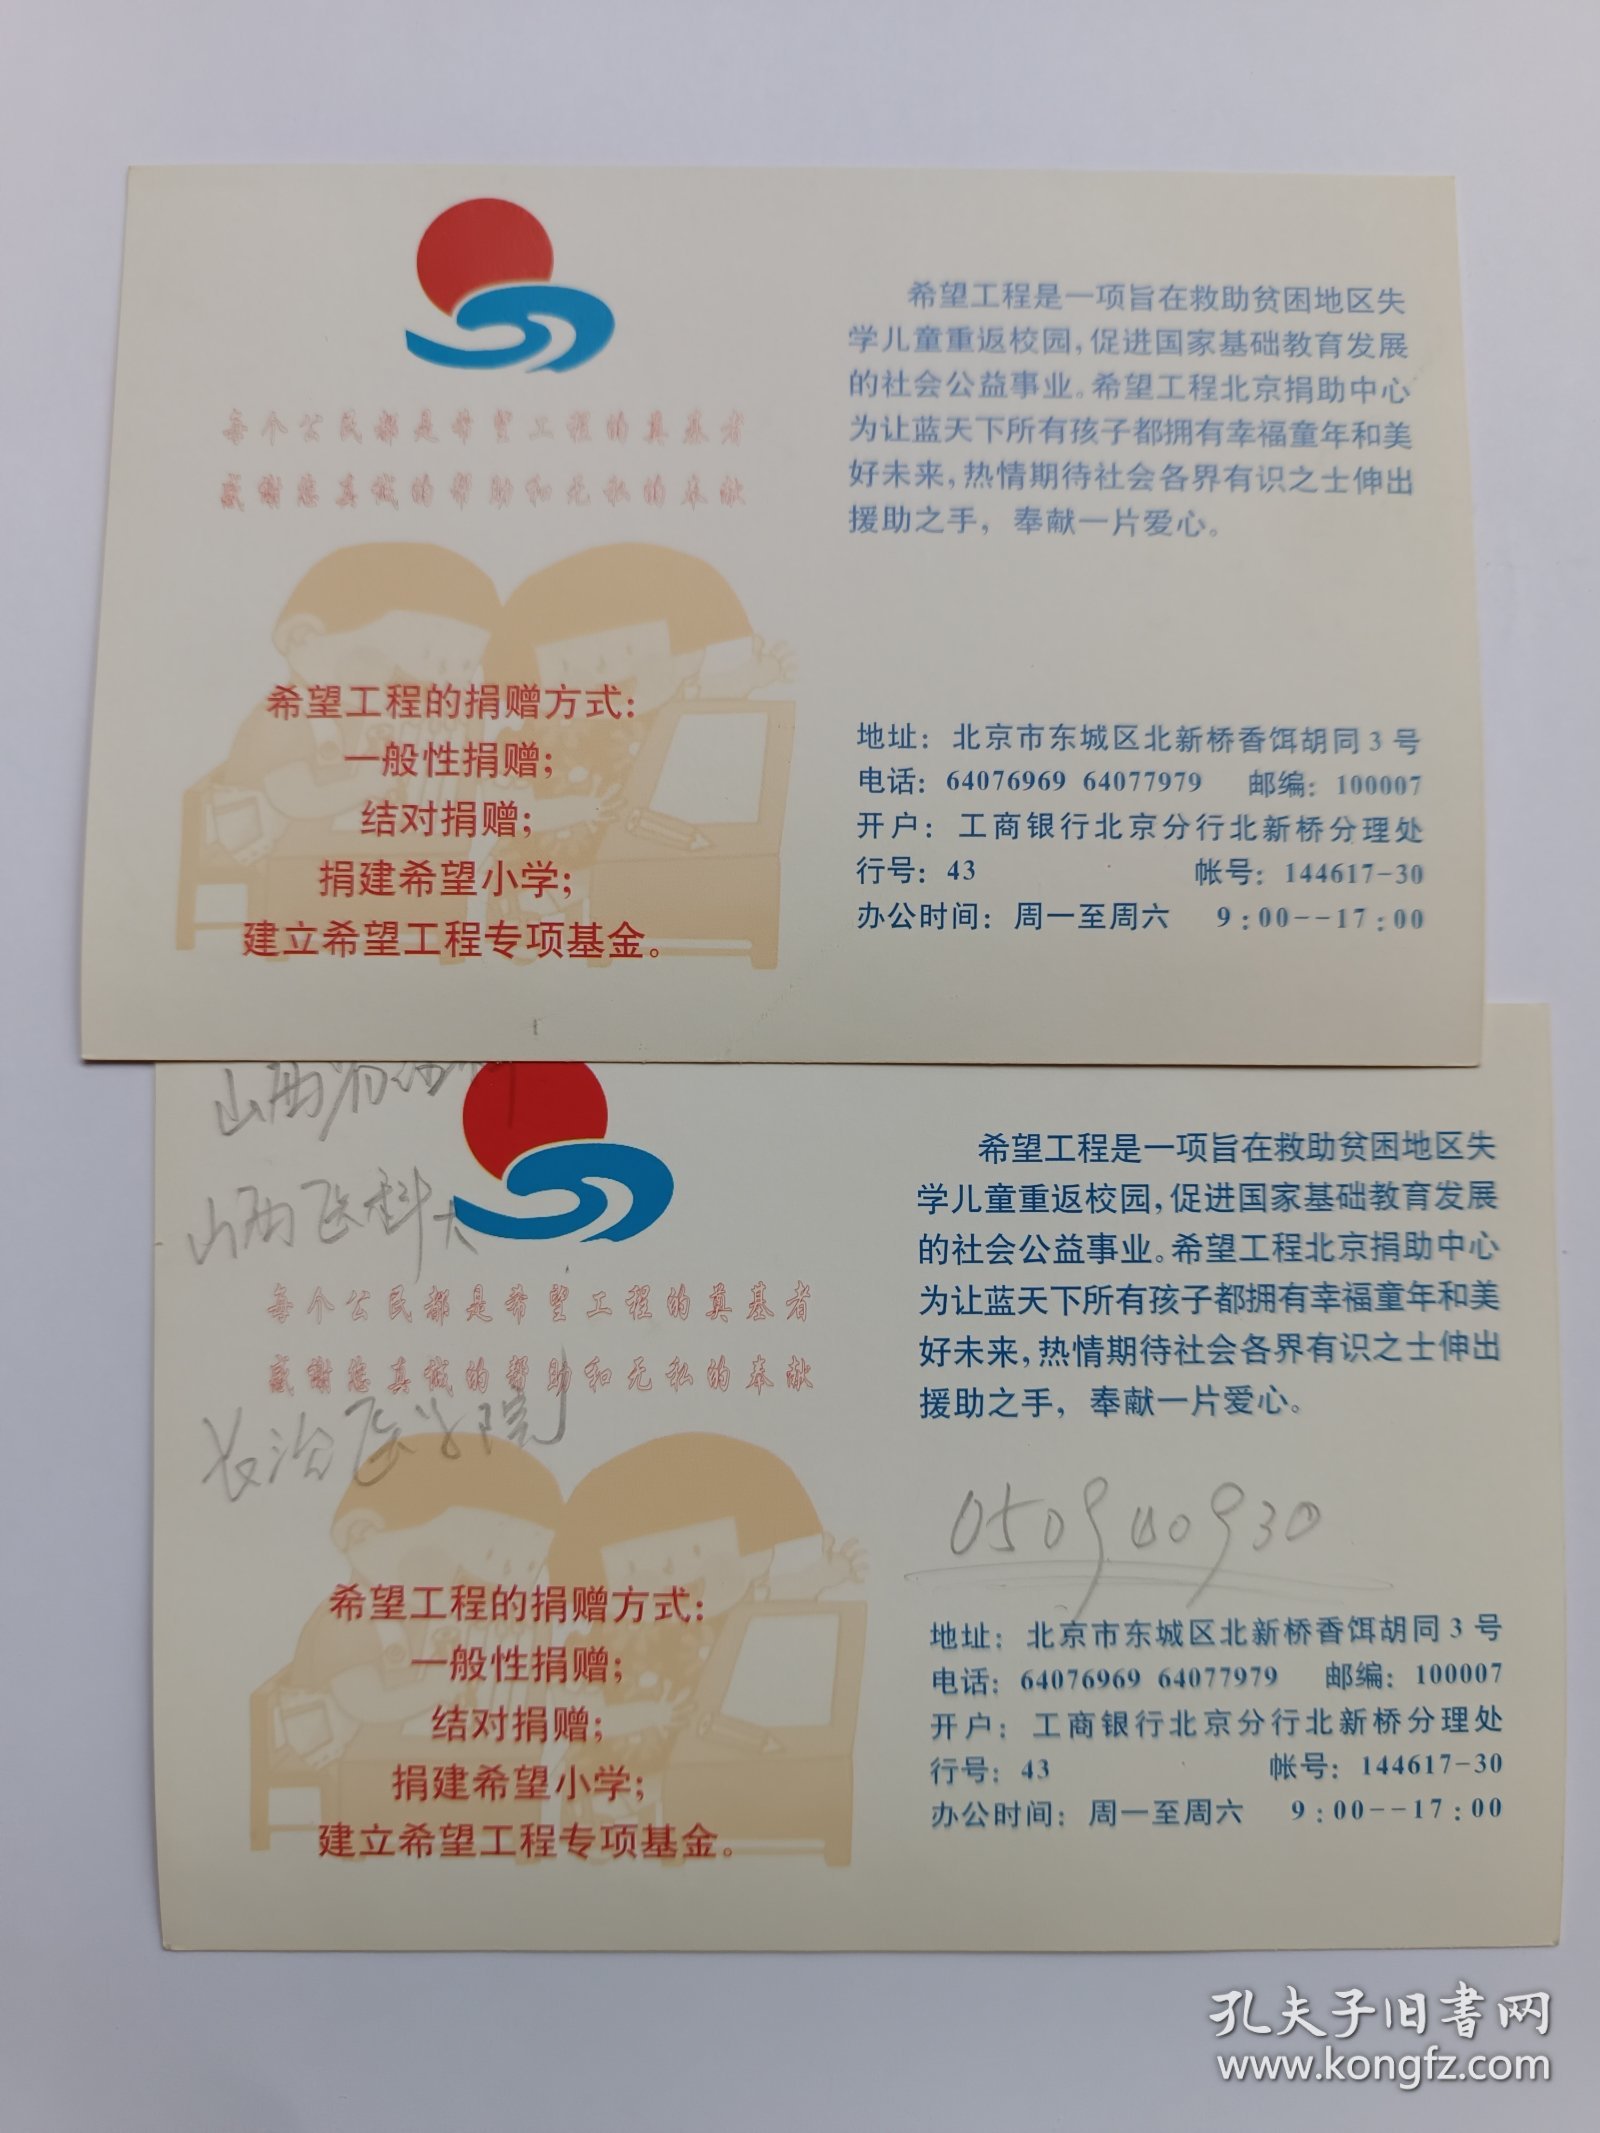 每个公民都是希望工程的奠基者
感谢您真诚的帮助和无私的奉献
希望工程的捐赠方式:
一般性捐赠;
结对捐赠;
捐建希望小学;
建立希望工程专项基金。
希望工程是一项旨在救助贫困地区失
学儿童重返校园,促进国家基础教育发展
的社会公益事业。希望工程北京捐助中心
为让蓝天下所有孩子都拥有幸福童年和美
好未来,热情期待社会各界有识之士伸出
援助之手，奉献一片爱心。
地址：北京市东城区北新桥香饵胡同3号
电话：64076969 64077979 邮编：100007
开户：工商银行北京分行北新桥分理处
行号：43 帐号：144617-30
办公时间：周一至周六 9:00--17:00
山西省
山西医科大
每个公民都是希望工程的奠基者
感谢您真诚的帮助和无私的奉献
长治医学院
希望工程的捐赠方式:
一般性捐赠;
结对捐赠;
捐建希望小学;
建立希望工程专项基金。
希望工程是一项旨在救助贫困地区失
学儿童重返校园,促进国家基础教育发展
的社会公益事业。希望工程北京捐助中心
为让蓝天下所有孩子都拥有幸福童年和美
好未来,热情期待社会各界有识之士伸出
援助之手，奉献一片爱心。
0509400930
地址：北京市东城区北新桥香饵胡同3号
电话：64076969 64077979 邮编：100007
开户：工商银行北京分行北新桥分理处
行号：43 帐号：144617-30
办公时间：周一至周六 9:00--17:00
孔夫子旧书网
www.kongfz.com